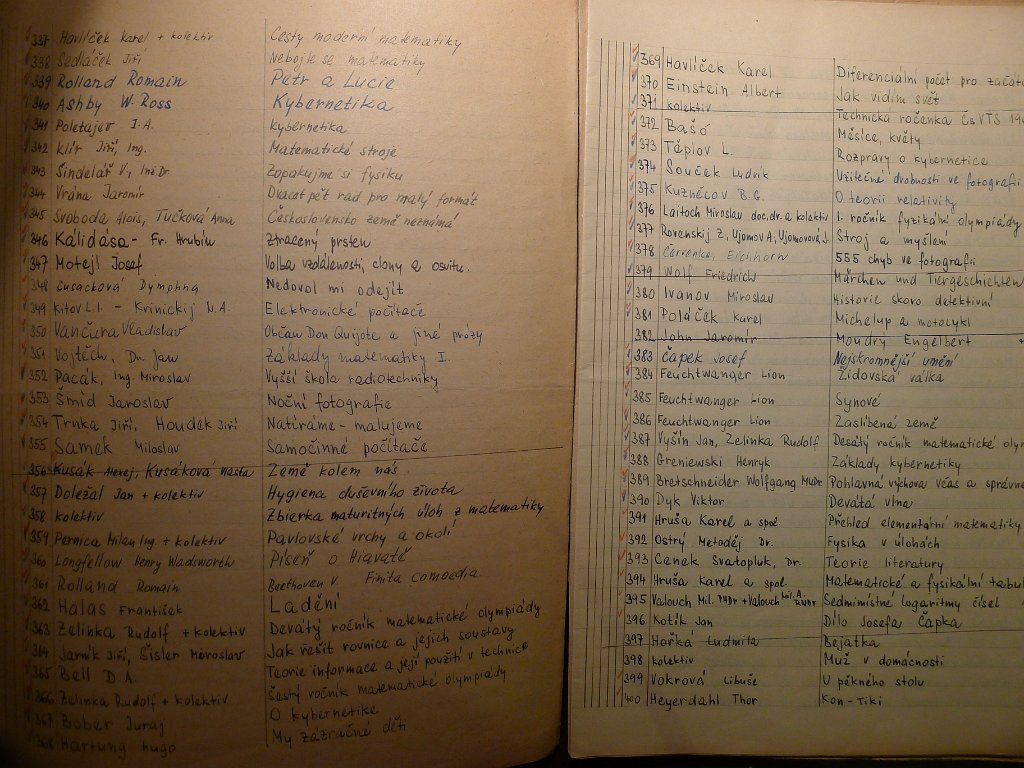 337 Havlíček Karel + kolektiv Cesty moderní matematiky
338 Sedláček Jiří Nebojte se matematiky
339 Rolland Romain Petr a Lucie
340 Ashby W. Ross Kybernetika
341 Poletajev I.A. kybernetika
342 Klír Jiří, Ing. Matematické stroje
343 Šindelář V., Ing. Dr. Zopakujme si fysiku
344 Vrána Jaromír Dvacet pět rad pro malý formát
345 Svoboda Alois, Tučková Anna Československo země neznámá
346 Kálidása - Fr. Hrubín Ztracený prsten
347 Motejl Josef Volba vzdálenosti, clony a osvitu.
348 Cusacková Dymphna Nedovol mi odejít
349 Kitov L.I. - Krinickij N.A. Elektronické počítače
350 Vančura Vladislav Občan Don Quijote a jiné prózy
351 Vojtěch, Dr. Jan Základy matematiky I.
352 Pacák, Ing. Miroslav Vyšší škola radiotechniky
353 Šmíd Jaroslav Noční fotografie
354 Trnka Jiří, Houdek Jiří Natíráme - malujeme
355 Samek Miloslav Samočinné počítače
356 Kusák Alexej, Kusáková Nasťa Země kolem nás
357 Doležal Jan + kolektiv Hygiena duševního života
358 kolektiv Zbierka maturitných úloh z matematiky
359 Pernica Milan Ing. + kolektiv Pavlovské vrchy a okolí
360 Longfellow Henry Wadsworth Píseň o Hiavatě
361 Rolland Romain Beethoven V. Finita comoedia.
362 Halas František Ladění
363 Zelinka Rudolf + kolektiv Devátý ročník matematické olympiády
364 Jarník Jiří, Šisler Miroslav Jak řešit rovnice a jejich soustavy
365 Bell D.A. Teorie informace a její použití v technice
366 Zelinka Rudolf + kolektiv Šestý ročník matematické olympiády
367 Bober Juraj O kybernetike
368 Hartung Hugo My zázračné děti
369 Havlíček Karel Diferenciální počet pro začát
370 Einstein Albert Jak vidím svět
371 kolektiv Technická ročenka ČsVTS 19
372 Bašó Měsíce, květy
373 Těplov L. Rozpravy o kybernetice
374 Souček Ludvík Užitečné drobnosti ve fotografii
375 Kuzněcov B.G. O teorii relativity
376 Laitoch Miroslav doc. dr. a kolektiv 1. ročník fyzikální olympiády
377 Rovenskij Z., Ujomov A., Ujomovová J. Stroj a myšlení
378 Červenka, Eichhorn 555 chyb ve fotografii
379 Wolf Friedrich Märchen und Tiergeschichten
380 Ivanov Miroslav Historie skoro detektivní
381 Poláček Karel Michelup a motocykl
382 John Jaromír Moudrý Engelbert
383 Čapek Josef Nejskromnější umění
384 Feuchtwanger Lion Židovská válka
385 Feuchtwanger Lion Synové
386 Feuchtwanger Lion Zaslíbená země
387 Vyšín Jan, Zelinka Rudolf Desátý ročník matematické olym
388 Greniewski Henryk Základy kybernetiky
389 Bretschneider Wolfgang MUDr. Pohlavná výchova včas a správne
390 Dyk Viktor Devátá vlna
391 Hruša Karel a spol. Přehled elementární matematiky
392 Ostrý Metoděj Dr. Fysika v úlohách
393 Cenek Svatopluk, Dr. Teorie literatury
394 Hruša Karel a spol. Matematické a fysikální tabul
395 Valouch Mil. PHDr + Valouch Mil. A. Sedmimístné logaritmy čísel
396 Kotík Jan Dílo Josefa Čapka
397 Horká Ludmila Bejatka
398 kolektiv Muž v domácnosti
399 Vokrová Libuše U pěkného stolu
400 Heyerdahl Thor Kon-Tiki